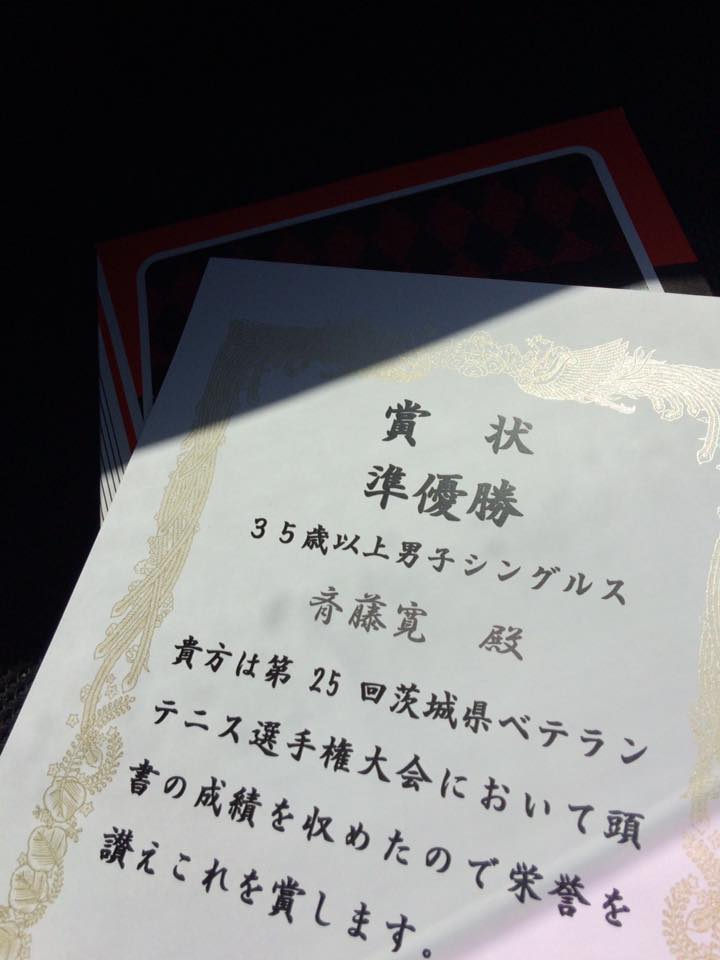 賞 状
準優勝
35歳以上男子シングルス
斉藤寛 殿
貴方は第 25 回茨城県ベテラン
テニス選手権大会において頭
書の成績を収めたので栄誉を
讃えこれを賞します。